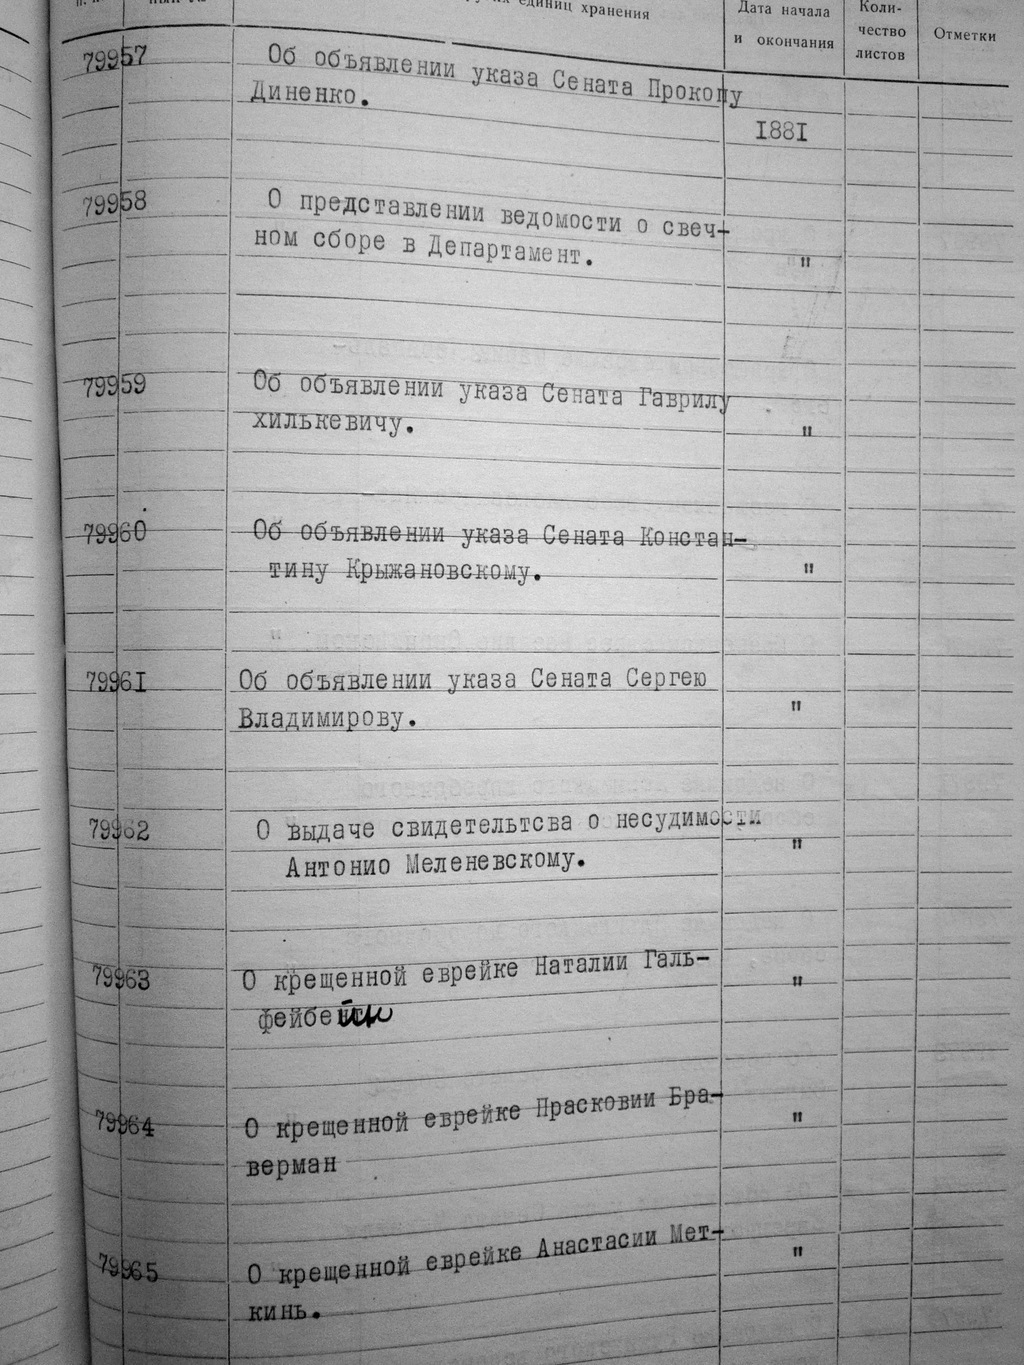 единиц хранения
Дата начала
и окончания
Коли-
чество
листов
Отметки
79957 Об объявлении указа Сената Прокопу
Диненко.
I88I
79958 О представлении ведомости о свеч-
ном сборе в Департамент. "
79959 Об объявлении указа Сената Гаврилу
хилькевичу. "
79960 Об объявлении указа Сената Констан-
тину Крыжановскому. "
7996I Об объявлении указа Сената Сергею
Владимирову. "
79962 О выдаче свидетельтсва о несудимости
Антонио Меленевскому. "
79963 О крещенной еврейке Наталии Галь- "
фейбейн
79964 О крещенной еврейке Прасковии Бра- "
верман
79965 О крещенной еврейке Анастасии Мет- "
кинь.